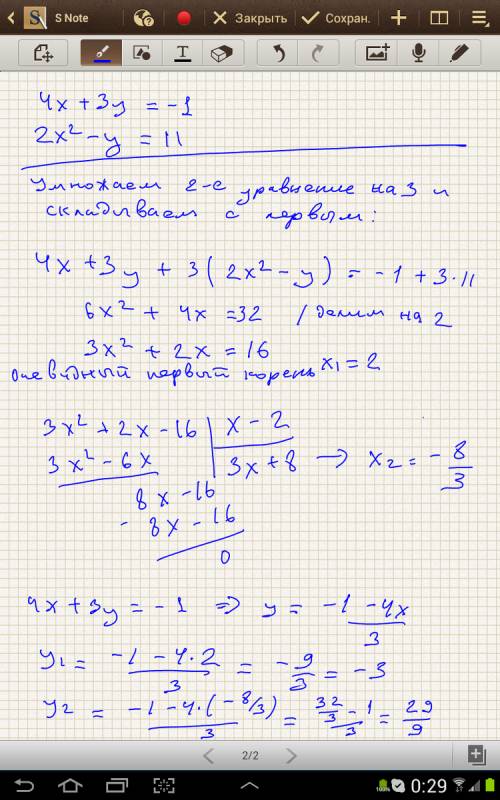 S Note Закрыть Сохран.
4x + 3y = -1
2x² - y = 11
Умножаем 2-е уравнение на 3 и
складываем с первым:
4x + 3y + 3(2x² - y) = -1 + 3·11
6x² + 4x = 32 / делим на 2
3x² + 2x = 16
очевидный первый корень x₁ = 2
3x² + 2x - 16 | x - 2
3x² - 6x | 3x + 8 → x₂ = -8/3
8x - 16
- 8x - 16
0
4x + 3y = -1 ⇒ y = (-1 - 4x)/3
y₁ = (-1 - 4·2)/3 = -9/3 = -3
y₂ = (-1 - 4·(-8/3))/3 = (32/3 - 1)/3 = 29/9
2/2
100% 0:29